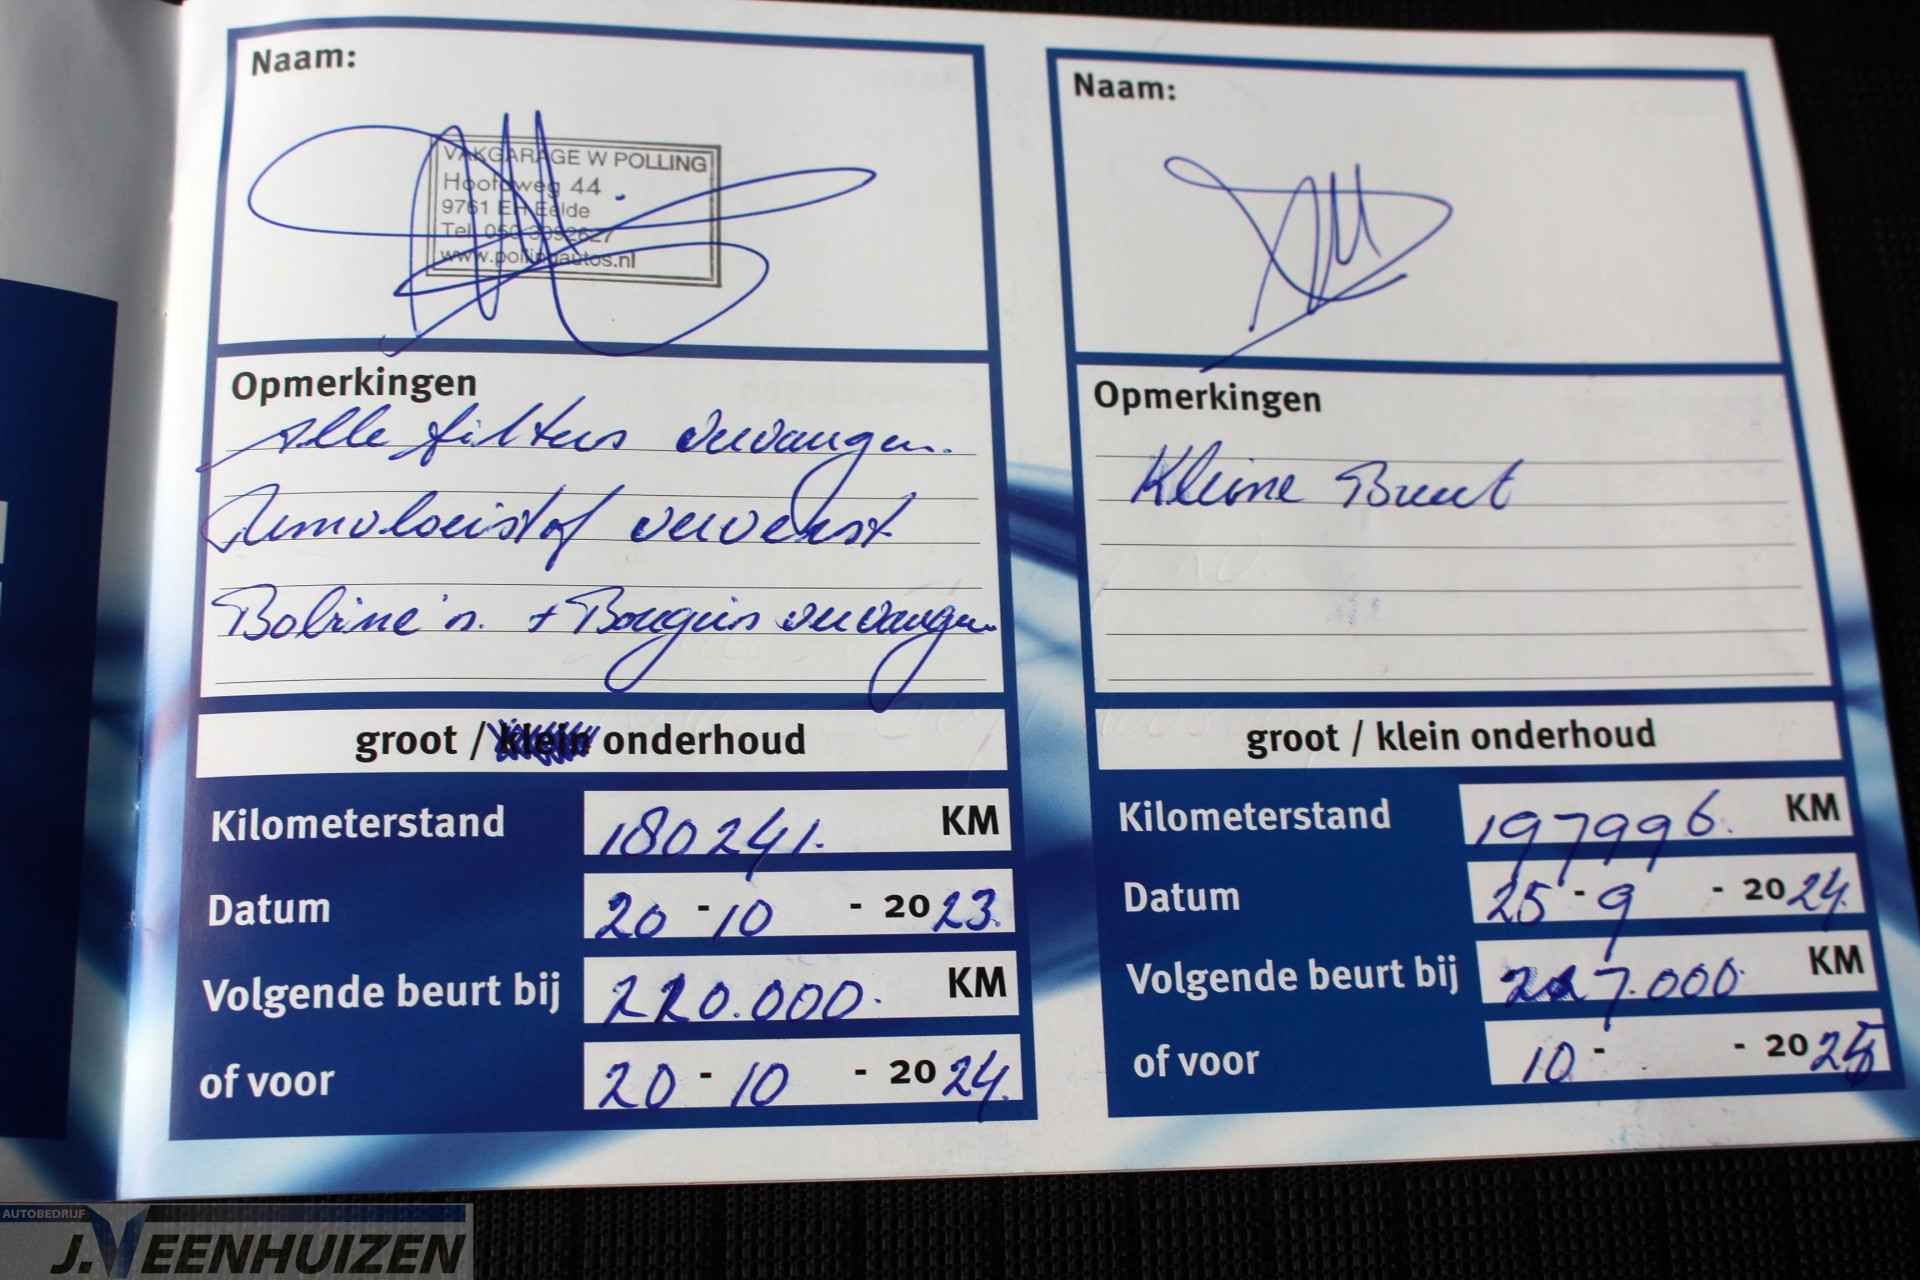 Naam:
VAKGARAGE W POLLING
Hoofdweg 44
9761 EH Eelde
Tel. 050-3092627
www.pollingautos.nl
Opmerkingen
Alle filters vervangen.
Remvloeistof ververst
Bobine's. + Bougies vervangen.
groot / klein onderhoud
Kilometerstand 180241. KM
Datum 20 - 10 - 2023.
Volgende beurt bij 220.000. KM
of voor 20 - 10 - 2024.
Naam:
Opmerkingen
Kleine Beurt
groot / klein onderhoud
Kilometerstand 197996. KM
Datum 25 - 9 - 2024.
Volgende beurt bij 227.000. KM
of voor 10 - - 2025
AUTOBEDRIJF
J. VEENHUIZEN